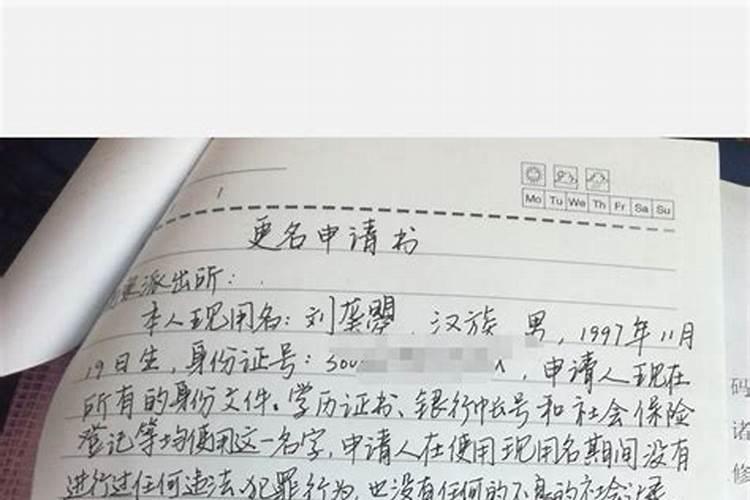 Mo Tu We Th Fr Sa Su
更名申请书
派出所:
本人现用名:刘 汉族 男,1997年11月
19日生,身份证号: ,申请人现在
所有的身份文件。学历证书、银行帐号和社会保险
登记等均使用这一名字,申请人在使用现用名期间没有
进行过任何违法、犯罪行为,也没有任何的不良的社会记录
码
诸
修